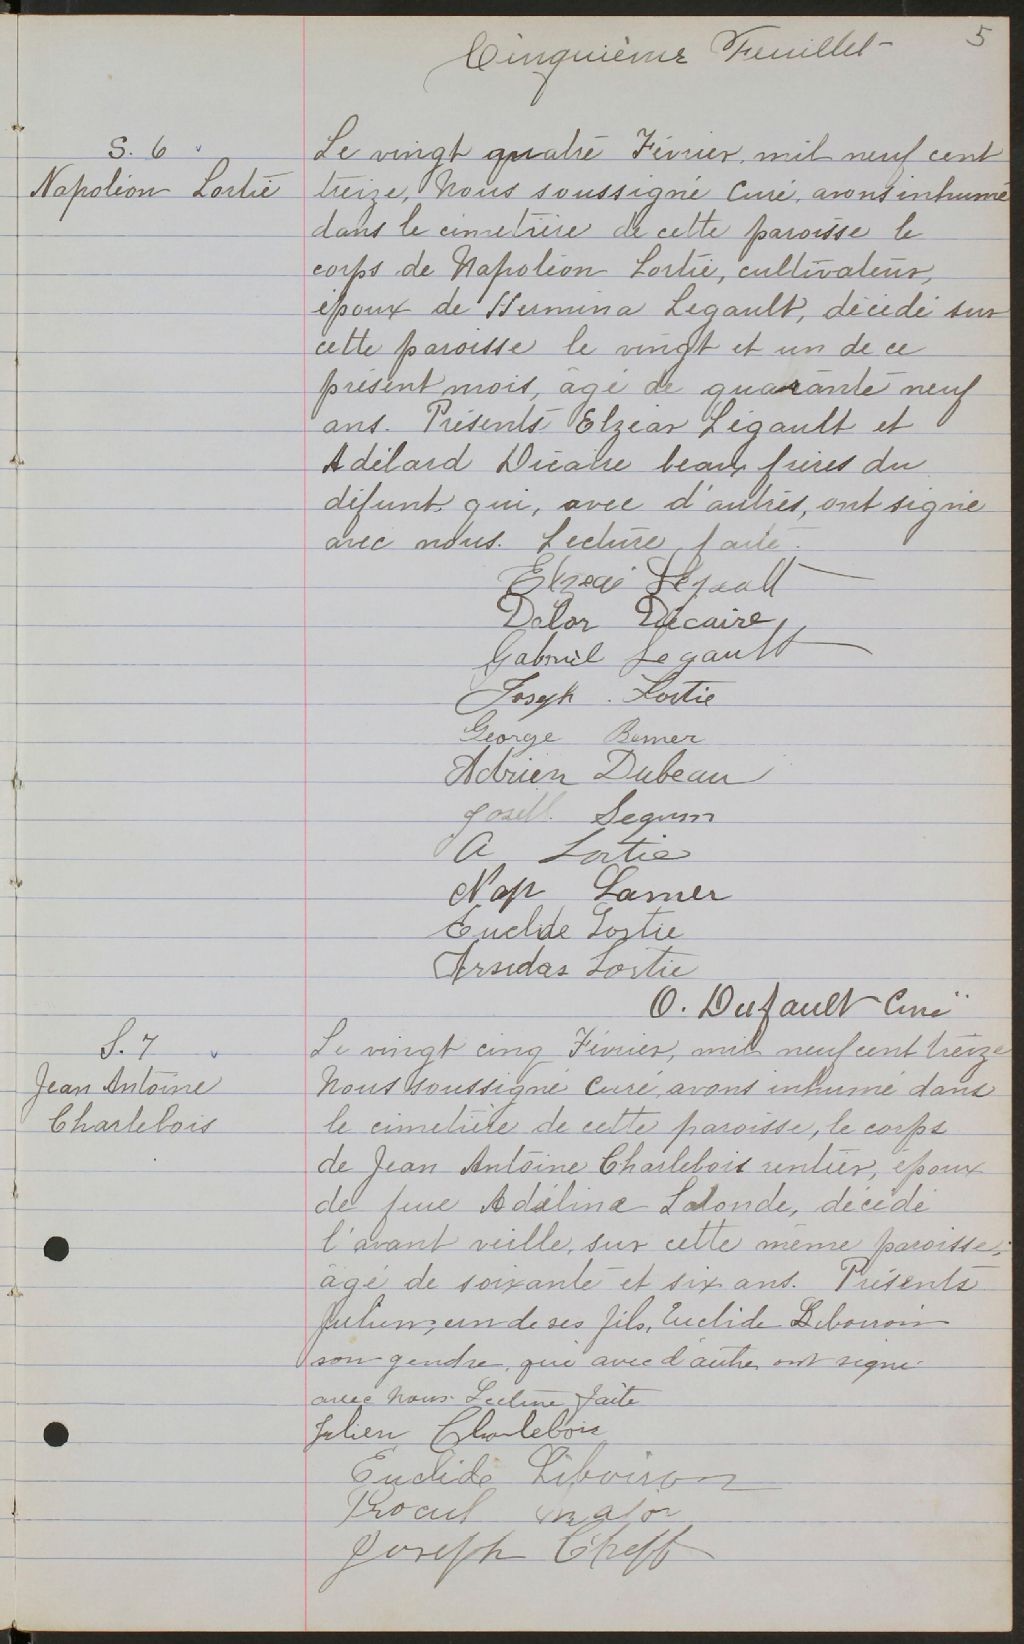 5
Cinquième Feuillet
S. 6
Napoléon Lortie
Le vingt quatre Février, mil neuf cent
treize, Nous soussigné Curé, avons inhumé
dans le cimetière de cette paroisse le
corps de Napoléon Lortie, cultivateur,
époux de Hermina Legault, décédé sur
cette paroisse le vingt et un de ce
présent mois, âgé de quarante neuf
ans. Présents Elzéar Légault et
Adélard Décaire beaux frères du
défunt qui, avec d'autres, ont signé
avec nous. Lecture faite.
Elzear Legault
Delor Décaire
Gabriel Legault
Joseph Lortie
George
Adrien Dubeau
Seguin
A Lortie
Nap Lamer
Euclide Lortie
Arsidas Lortie
O. Dufault Curé
S. 7
Jean Antoine
Charlebois
Le vingt cinq Février, mil neuf cent treize
Nous soussigné Curé, avons inhumé dans
le cimetière de cette paroisse, le corps
de Jean Antoine Charlebois rentier, époux
de feue Adélina Lalonde, décédé
l'avant veille, sur cette même paroisse,
âgé de soixante et six ans. Présents
Julien, un de ses fils, Euclide Liboiron
son gendre, qui avec d'autre ont signé
avec nous. Lecture faite
Julien Charlebois
Euclide Liboiron
Major
Joseph Cheff